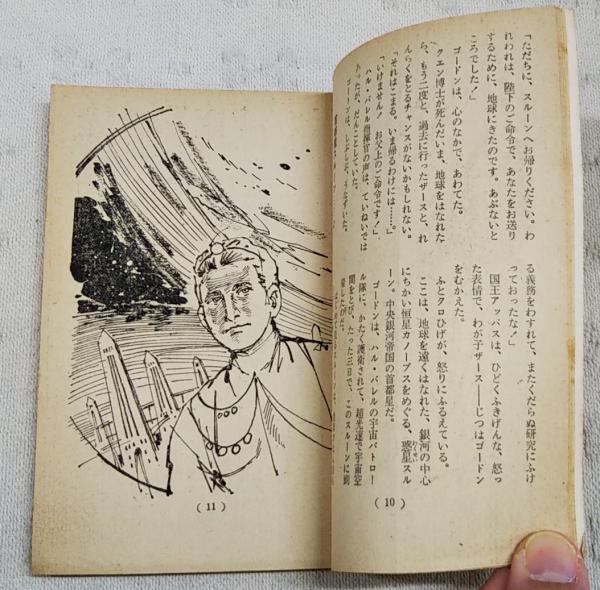 「ただちに、スルーンへお帰りください。わ
れわれは、陛下のご命令で、あなたをお送り
するために、地球にきたのです。あぶないと
ころでした！」
ゴードンは、心のなかで、あわてた。
クエン博士が死んだいま、地球をはなれた
ら、もう二度と、過去に行ったザースと、れ
んらくをとるチャンスがないかもしれない。
「それはこまる。いま帰るわけには……。」
「いけません！　お父上のご命令です！」
ハル・バレル指揮官の声は、ていねいでは
あったが、だんことしていた。
ゴードンは、しかたなく、うなずいた。
る義務をわすれて、またくだらぬ研究にふけ
っておったな！」
国王アッバスは、ひどくふきげんな、怒っ
た表情で、わが子ザース——じつはゴードン
をむかえた。
ふとクロひげが、怒りにふるえている。
ここは、地球を遠くはなれた、銀河の中心
にちかい恒星カノープスをめぐる、惑星スル
わくせい
ーン。中央銀河帝国の首都星だ。
ゴードンは、ハル・バレルの宇宙パトロー
ル隊に、かたく護衛されて、超光速で宇宙空
間をとび、たった三日で、このスルーンに到
着したのだ。
(10)
(11)